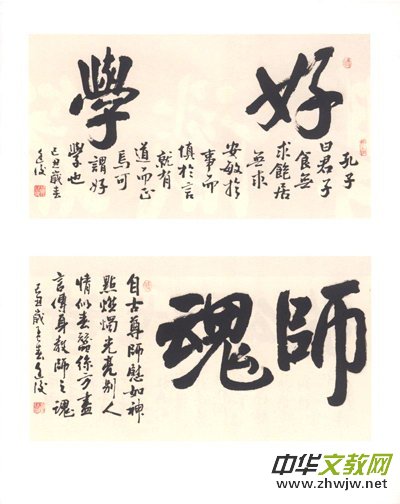 好學
孔子
曰君子
食無
求飽居
無求
安敏於
事而
慎於言
就有
道而正
焉可
謂好
學也
己丑歲春
師魂
自古尊師慰如神
點燃燭光亮別人
情似春蠶絲方盡
言傳身教師之魂
己丑歲春
中华文教网
www.zhwjw.net